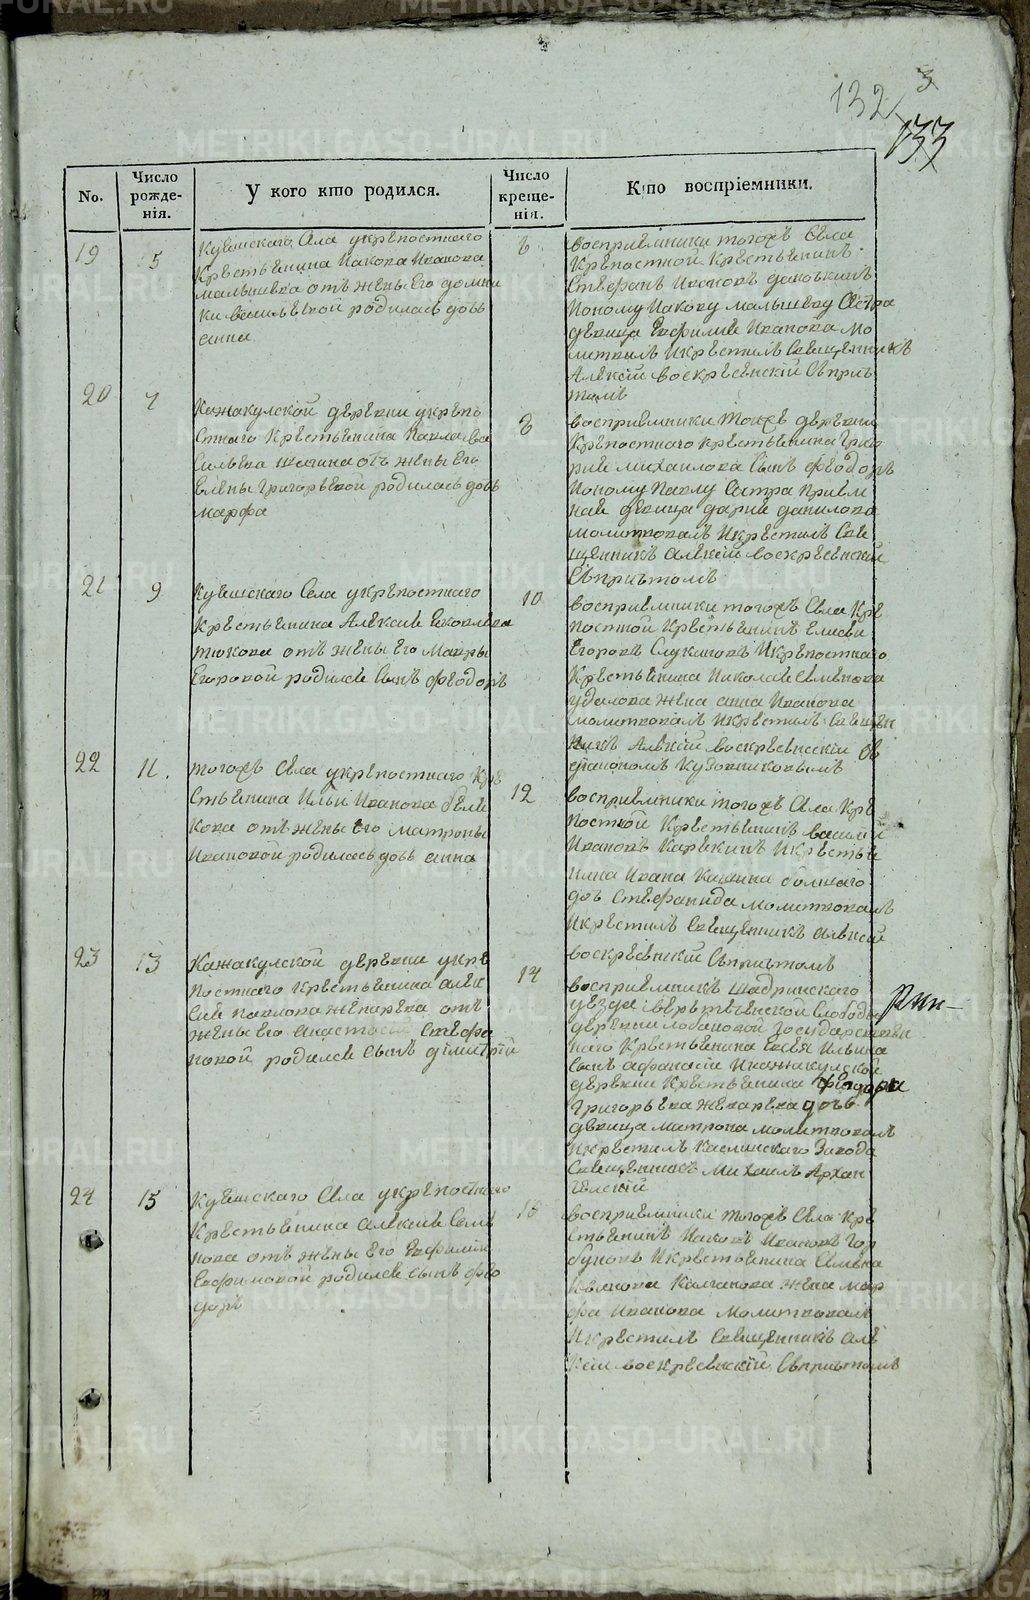 132
3
133
No.
Число рожде-нія.
У кого кто родился.
Число креще-нія.
Кто воспріемники.
19
5
Куяшскаго Села укрѣпостнаго
Крѣстьянина Иакова Иванова
Малышева отъ жены Его домни
ки василь евой родилась дочь
анна
6
восприемники тогожъ Села
Крѣпостной Крѣстьянинъ
Стефанъ Ивановъ
Ионому Иакову Малышеву Сестра
девица Евфимия Иванова Мо
литвалъ Икрѣстилъ Священникъ
Алексій воскресенскій Сприч
томъ
20
7
Кажакулской деревни укрѣпо
стнаго Крѣстьянина Павла ва
сильева отъ жены Его
Елены Григорьевой родилась дочь
марфа
8
восприемники Тоиже деревни
Крѣпостнаго крѣстьянина Григо
рия михаилова Сынъ феодоръ
Ионому Павлу Сестра Прием
ная девица дария данилова
молитвовалъ Икрѣстилъ Свя
щенникъ алексій воскресенскій
Спричтомъ
21
9
Куяшскаго Села укрѣпостнаго
Крѣстьянина Алексия Яковлева
тюкова отъ жены Его Мавры
Егоровой родился Сынъ феодоръ
10
восприемники тогожъ Села Крѣ
постной Крѣстьянинъ Елисеи
Егоровъ Икрѣпостнаго
Крѣстьянина Николая Семенова
удалова жена анна Иванова
молитвовалъ Икрѣстилъ Священ
никъ Алексій воскресенскій Св
22
11.
тогожъ Села укрѣпостнаго Крѣ
Стьянина Ильи Иванова беля
кова отъ жены Его матроны
Ивановой родилась дочь анна
12
восприемники тогожъ Села Крѣ
постной Крѣстьянинъ василей
Ивановъ Карякинъ Икрѣстья
нина Ивана Кашина болшаго
дочь Стефанида молитвовалъ
Икрѣстилъ Священникъ алексій
воскресенскій Спричтомъ
23
13
Кажакулской деревни укрѣ
постнаго Крѣстьянина алек
сия павлова жанарева отъ
жены Его анастасии Стефа
новой родился Сынъ димитрій
14
восприемникъ шадринскаго
уезда Слободы
деревни лобановой государствен
наго Крѣстьянина Ильина
Сынъ афанасій Икажакулской
деревни Крѣстьянина феодора
Григорьева жанарева дочь
девица матрона молитвовалъ
Икрѣстилъ Каслинскаго Завода
Священникъ Михаилъ Архан
гелскій
24
15
Куяшскаго Села укрѣпостнаго
Крѣстьянина алексия Семе
нова отъ жены Его Евфимии
Евфимовой родился Сынъ фео
доръ
восприемники тогожъ Села Крѣ
стьянинъ Иаковъ Ивановъ Гор
буновъ Икрѣстьянина Семена
Калганова жена мар
фа Иванова Молитвовалъ
Икрѣстилъ Священникъ алѣ
ксій воскресенскій Спричтомъ